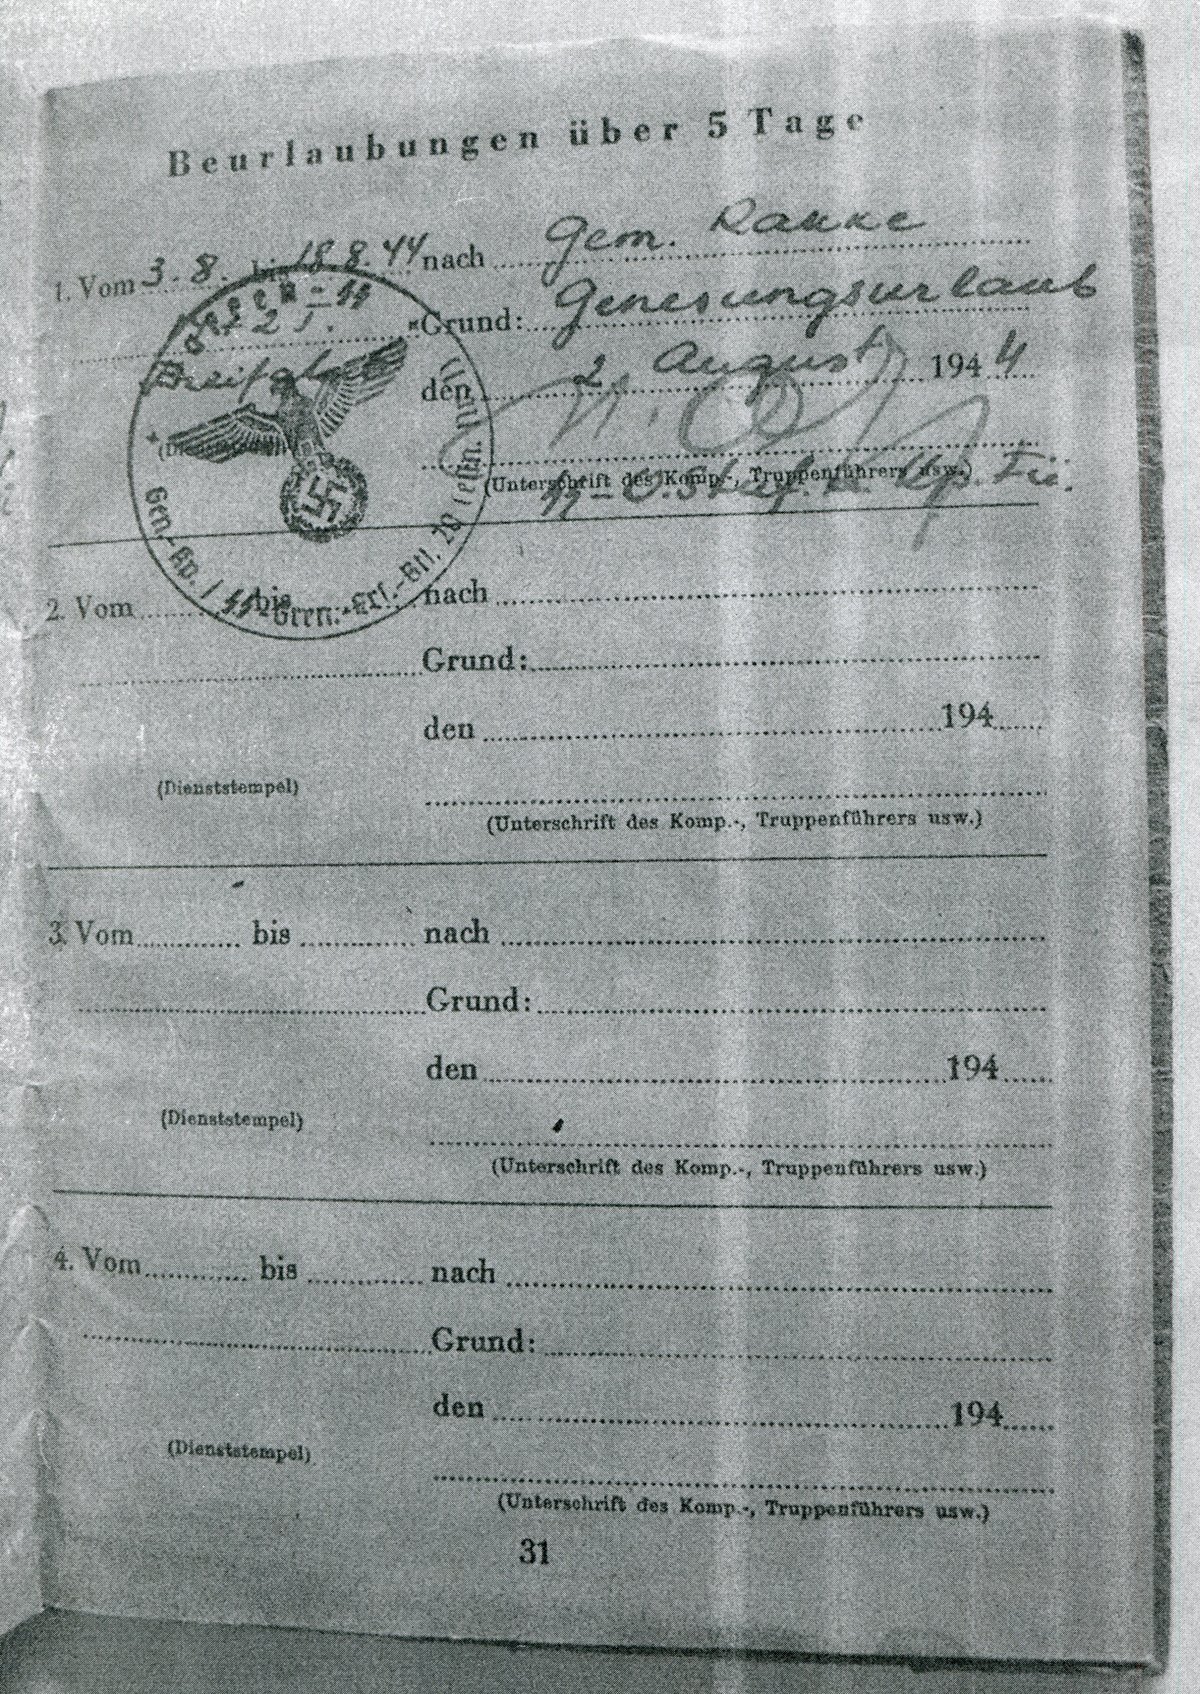 Beurlaubungen über 5 Tage
1. Vom 3.8. bis 18.8.44 nach Gem. Rakke
Grund: Genesungsurlaub
den 2. August 1944
(Dienststempel)
(Unterschrift des Komp.-, Truppenführers usw.)
Waffen-SS
Gen.-Kp. / SS-Gren.-Ers.-Btl. 20 (estn. Nr. 1)
2. Vom bis nach
Grund:
den 194
(Dienststempel)
(Unterschrift des Komp.-, Truppenführers usw.)
3. Vom bis nach
Grund:
den 194
(Dienststempel)
(Unterschrift des Komp.-, Truppenführers usw.)
4. Vom bis nach
Grund:
den 194
(Dienststempel)
(Unterschrift des Komp.-, Truppenführers usw.)
31